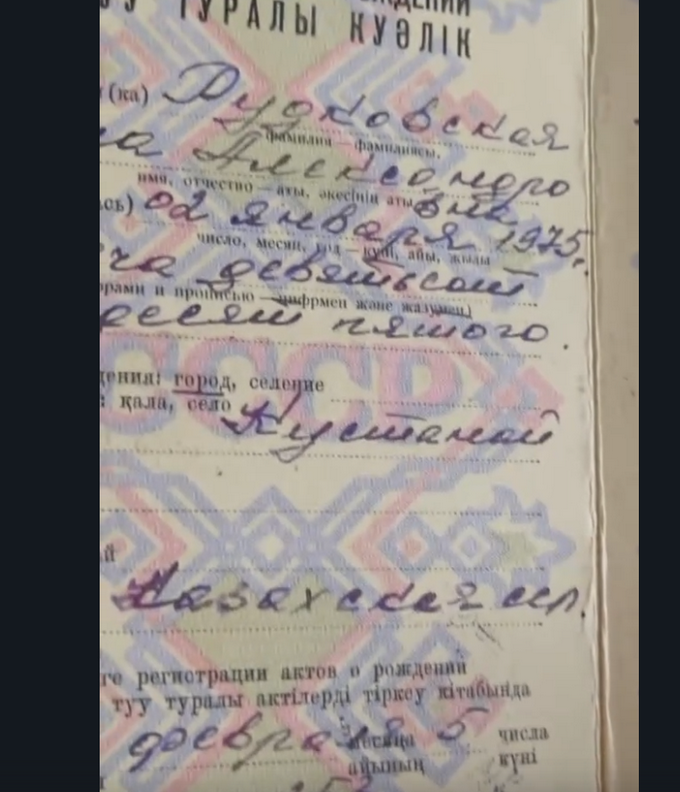 ТУРАЛЫ КУӘЛІК
(ка) Рудковская
фамилия — фамилиясы,
на Александро
имя, отчество — аты, әкесінің аты вна
сь) 02 января 1975.
число, месяц, год — күні, айы, жылы
ча девятьсот
рами и прописью — цифрмен және жазумен)
десят пятого.
СССР
дения: город, селение
: қала, село
Кустанай
Казахская сср.
ге регистрации актов о рождений
туу туралы актілерді тіркеу кітабында
февраля месяца 5 числа
айының күні